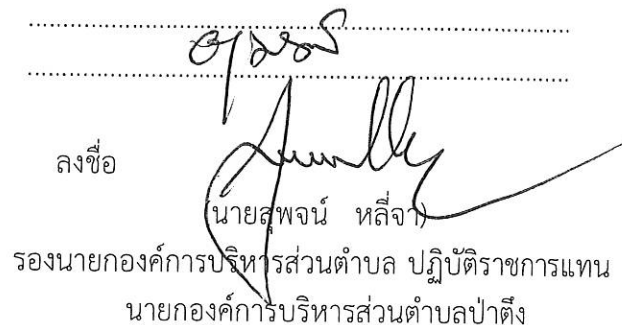 อนุมัติ
ลงชื่อ
(นายสุพจน์ หลี่จา)
รองนายกองค์การบริหารส่วนตำบล ปฏิบัติราชการแทน
นายกองค์การบริหารส่วนตำบลป่าตึง